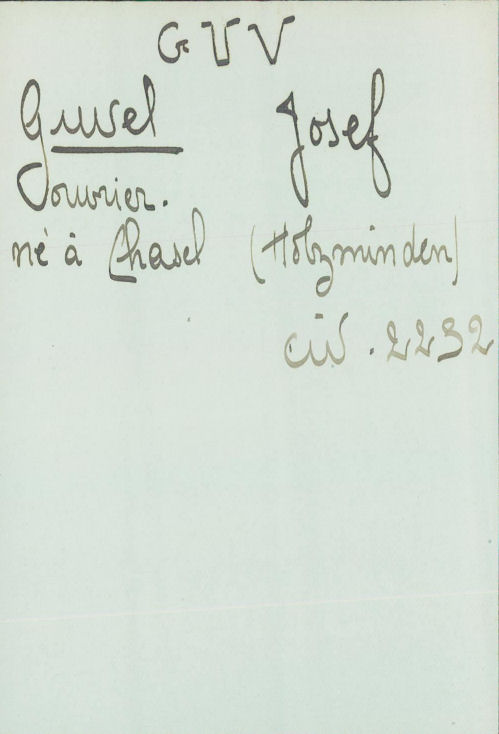 GUV
Guvel Josef
ouvrier.
né à Chasel (Holzminden)
civ. 2232